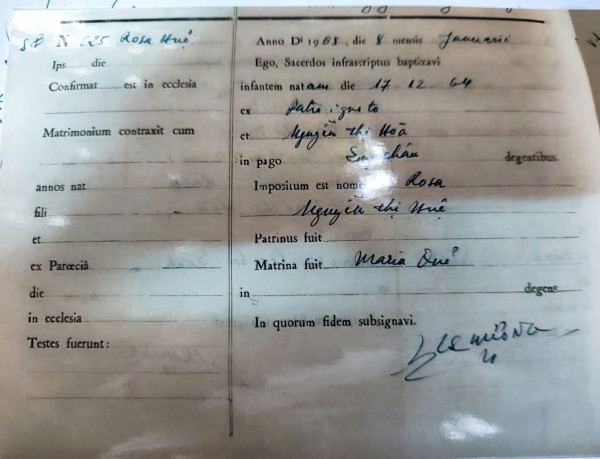 N 525 Rosa Huệ
Ips. die
Confirmat est in ecclesia
Matrimonium contraxit cum
annos nat
fili
et
ex Parœciâ
die
in ecclesia
Testes fuerunt:
Anno Dⁱ 1965, die 8 mensis Januarii
Ego, Sacerdos infrascriptus baptizavi
infantem natam die 17.12.64
ex Patre ignoto
et Nguyễn thị Hoà
in pago degentibus.
Impositum est nomen Rosa
Nguyễn thị Huệ
Patrinus fuit
Matrina fuit Maria Quế
in degens
In quorum fidem subsignavi.